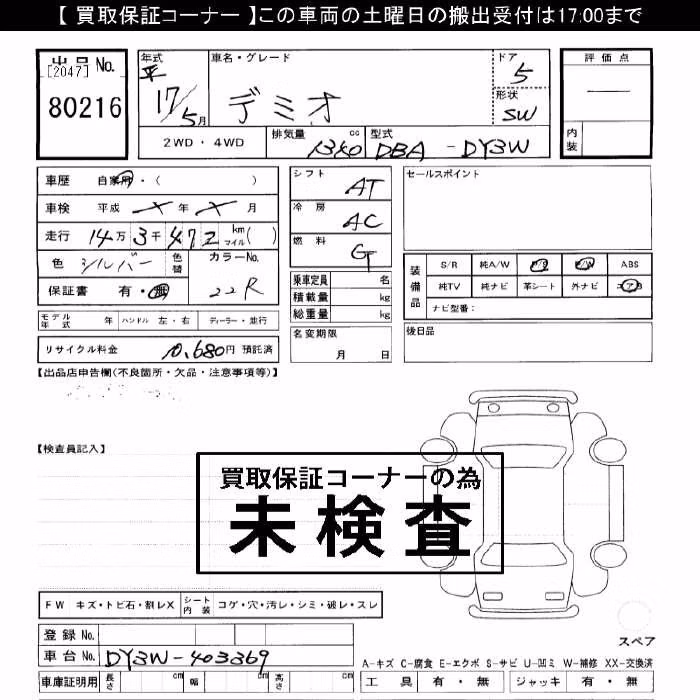 【 買取保証コーナー 】この車両の土曜日の搬出受付は17:00まで
出品 No.
[2047]
80216
年式
平 17/5月
車名・グレード
デミオ
ドア
5
形状
SW
評価点
内装
2WD・4WD
排気量 cc
1340
型式
DBA - DY3W
車歴 自家用・( )
車検 平成 × 年 × 月
走行 14万 3千 472 km マイル ( )
色 シルバー 色替
カラーNo.
22R
保証書 有・無
モデル年式 年 ハンドル 左・右 ディーラー・並行
リサイクル料金 10,680円 預託済
シフト AT
冷房 AC
燃料 G
乗車定員 名
積載量 kg
総重量 kg
名変期限
月 日
セールスポイント
装備品
S/R 純A/W P/S P/W ABS
純TV 純ナビ 革シート 外ナビ エアB
ナビ型番:
後日品
【出品店申告欄(不良箇所・欠品・注意事項等)】
【検査員記入】
買取保証コーナーの為
未検査
FW キズ・トビ石・割レX シート内装 コゲ・穴・汚レ・シミ・破レ・スレ
登録 No.
車台 No. DY3W-403369
車庫証明用 長さ cm 幅 cm 高さ cm
スペア
A-キズ C-腐食 E-エクボ S-サビ U-凹ミ W-補修 XX-交換済
工具 有・無 ジャッキ 有・無